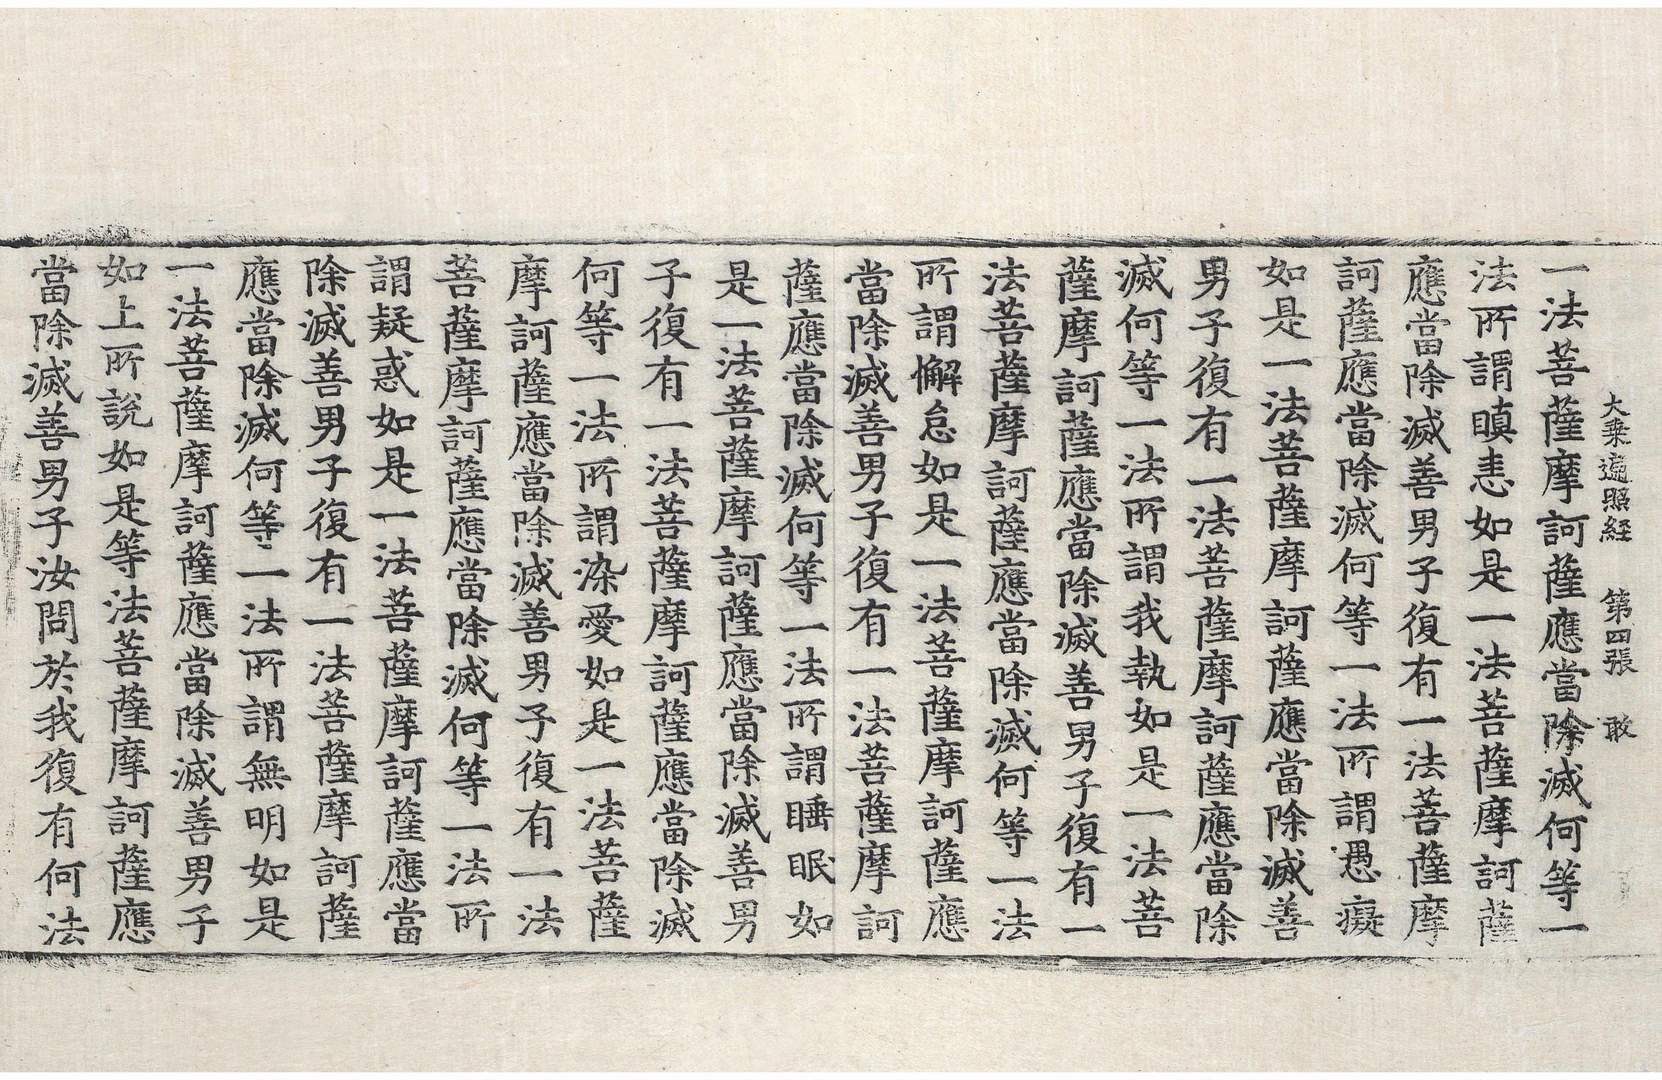 大乗遍照経 第四張 敢
一法菩薩摩訶薩應當除滅何等一
法所謂瞋恚如是一法菩薩摩訶薩
應當除滅善男子復有一法菩薩摩
訶薩應當除滅何等一法所謂愚癡
如是一法菩薩摩訶薩應當除滅善
男子復有一法菩薩摩訶薩應當除
滅何等一法所謂我執如是一法菩
薩摩訶薩應當除滅善男子復有一
法菩薩摩訶薩應當除滅何等一法
所謂懈怠如是一法菩薩摩訶薩應
當除滅善男子復有一法菩薩摩訶
薩應當除滅何等一法所謂睡眠如
是一法菩薩摩訶薩應當除滅善男
子復有一法菩薩摩訶薩應當除滅
何等一法所謂染愛如是一法菩薩
摩訶薩應當除滅善男子復有一法
菩薩摩訶薩應當除滅何等一法所
謂疑惑如是一法菩薩摩訶薩應當
除滅善男子復有一法菩薩摩訶薩
應當除滅何等一法所謂無明如是
一法菩薩摩訶薩應當除滅善男子
如上所說如是等法菩薩摩訶薩應
當除滅善男子汝問於我復有何法